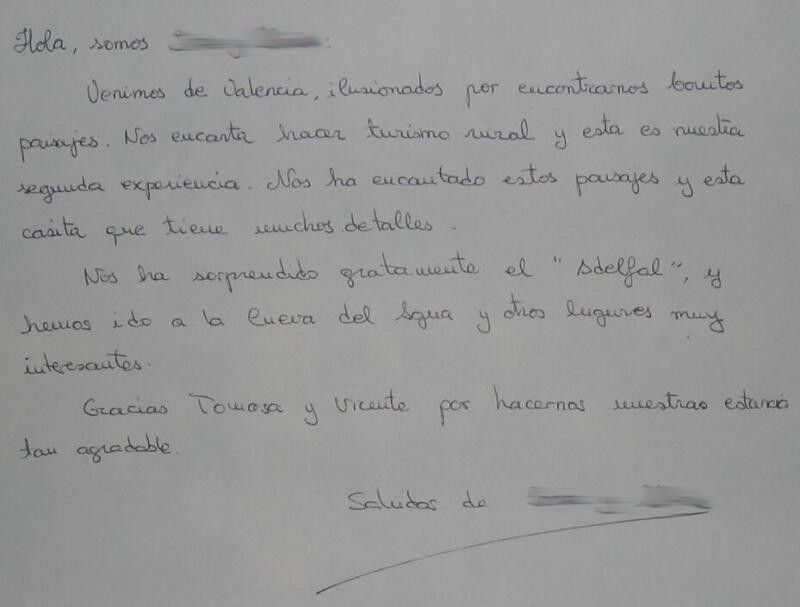 Hola, somos :
Venimos de Valencia, ilusionados por encontrarnos bonitos
paisajes. Nos encanta hacer turismo rural y esta es nuestra
segunda experiencia. Nos ha encantado estos paisajes y esta
casita que tiene muchos detalles.
Nos ha sorprendido gratamente el "Adelfal", y
hemos ido a la Cueva del Agua y otros lugares muy
interesantes.
Gracias Tomasa y Vicente por hacernos nuestras estancia
tan agradable.
Saludos de